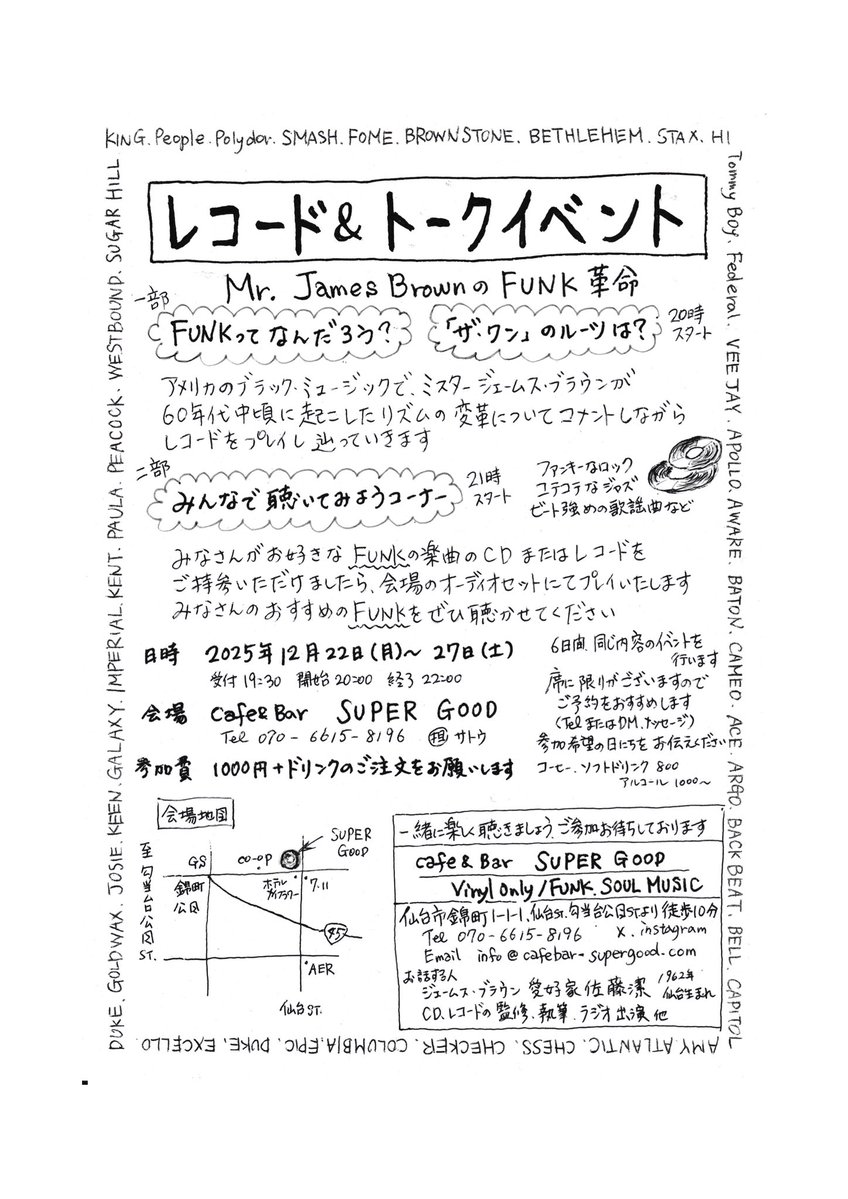 KING. People. Polydor. SMASH. FOME. BROWNSTONE. BETHLEHEM. STAX. HI
Tommy Boy. Federal. VEE JAY. APOLLO. AWARE. BATON. CAMEO. ACE. ARGO. BACK BEAT. BELL. CAPITOL
AMY. ATLANTIC. CHESS. CHECKER. COLUMBIA. EPIC. DUKE. EXCELLO.
DUKE. GOLDWAX. JOSIE. KEEN. GALAXY. IMPERIAL. KENT. PAULA. PEACOCK. WESTBOUND. SUGAR HILL
レコード&トークイベント
Mr. James BrownのFUNK革命
一部
FUNKってなんだろう?
「ザ・ワン」のルーツは?
20時
スタート
アメリカのブラック・ミュージックで、ミスタージェームス・ブラウンが
60年代中頃に起こしたリズムの変革についてコメントしながら
レコードをプレイし辿っていきます
二部
みんなで聴いてみようコーナー
21時
スタート
ファンキーなロック
コテコテなジャズ
ビート強めの歌謡曲など
みなさんがお好きなFUNKの楽曲のCDまたはレコードを
ご持参いただけましたら、会場のオーディオセットにてプレイいたします
みなさんのおすすめのFUNKをぜひ聴かせてください
日時 2025年12月22日(月)〜27日(土)
受付19:30 開始20:00 終了22:00
6日間、同じ内容のイベントを
行います
席に限りがございますので
ご予約をおすすめします
(TelまたはDM、メッセージ)
参加希望の日にちをお伝えください
会場 Cafe&Bar SUPER GOOD
Tel 070-6615-8196 担 サトウ
参加費 1000円+ドリンクのご注文をお願いします
コーヒー、ソフトドリンク 800
アルコール 1000〜
会場地図
SUPER
GOOD
至勾当台公園ST.
GS
co-op
錦町
公園
ホテル
7.11
45
AER
仙台ST.
一緒に楽しく聴きましょう、ご参加お待ちしております
cafe & Bar SUPER GOOD
Vinyl Only/FUNK. SOUL MUSIC
仙台市錦町1-1-1、仙台ST.勾当台公園ST.より徒歩10分
Tel 070-6615-8196 X. instagram
Email info@cafebar-supergood.com
お話する人
ジェームス・ブラウン愛好家 佐藤潔
1962年
仙台生まれ
CD、レコードの監修、執筆、ラジオ出演他